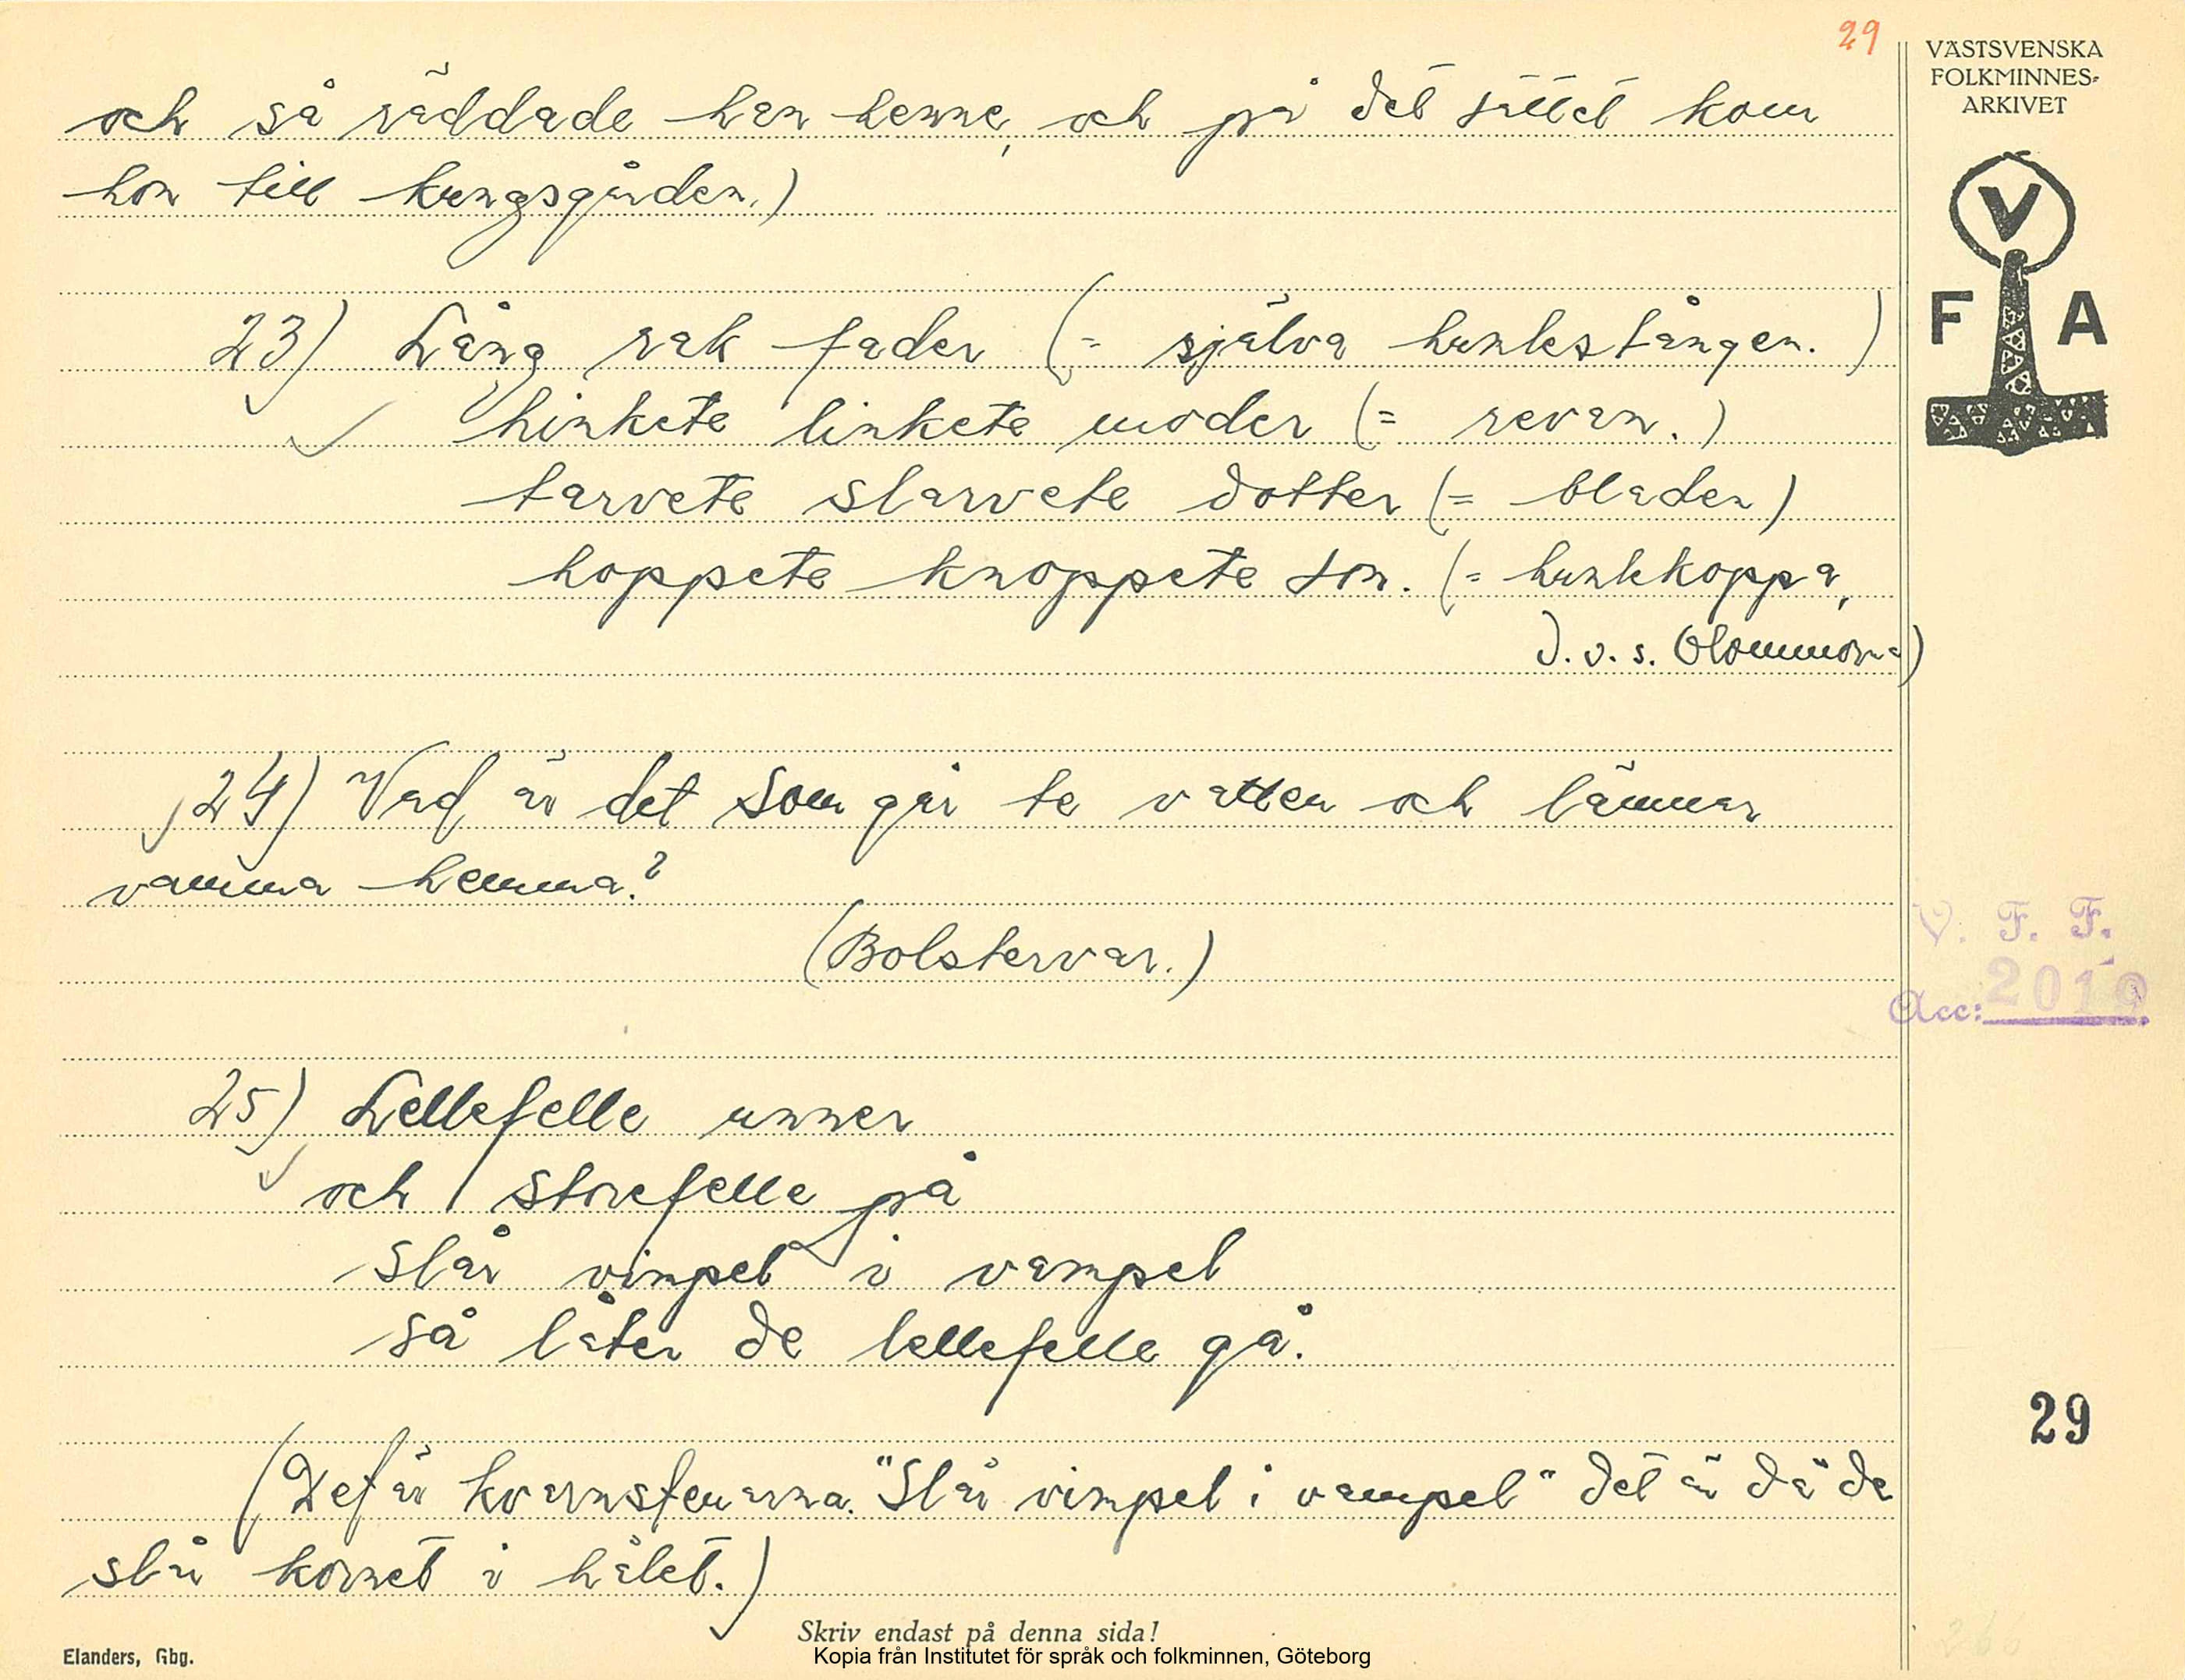 29
VÄSTSVENSKA
FOLKMINNES-
ARKIVET
V
F A
och så räddade han henne, och på det sättet kom
hon till kungsgården.)
23) Lång rak fader (= själva humlestången.)
hinkete linkete moder (= revan.)
tarvete slarvete dotter (= bladen)
hoppete knoppete son. (= humlekoppa,
d.v.s. blommorna)
24) Vad är det som går te vatten och lämnar
vamma hemma?
(Bolstervar.)
V. F. F.
Acc: 2019
25) Lellefelle unner
och storefelle på
slår vimpel i vampel
så låter de lellefelle gå.
29
(Det är kvarnstenarna. "Slår vimpel i vampel" det är då de
slår kornet i hålet.)
Skriv endast på denna sida!
Elanders, Gbg.
Kopia från Institutet för språk och folkminnen, Göteborg